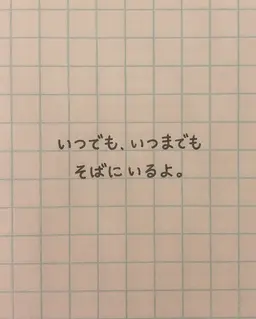 いつでも、いつまでも
そばに いるよ。